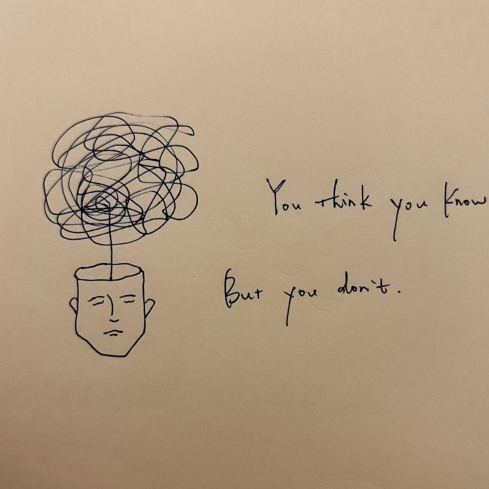 You think you know
But you don't.